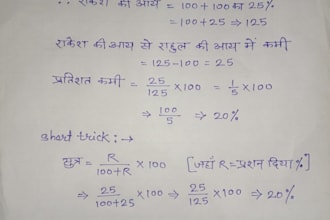 ∴ राकेश की आय = 100 + 100 का 25%
= 100 + 25 ⇒ 125
राकेश की आय से राहुल की आय में कमी
= 125 - 100 = 25
प्रतिशत कमी = 25/125 × 100 = 1/5 × 100
⇒ 100/5 ⇒ 20%
short trick : →
सूत्र = R/100+R × 100 [जहाँ R = प्रशन दिया %]
⇒ 25/100+25 × 100 ⇒ 25/125 × 100 ⇒ 20%